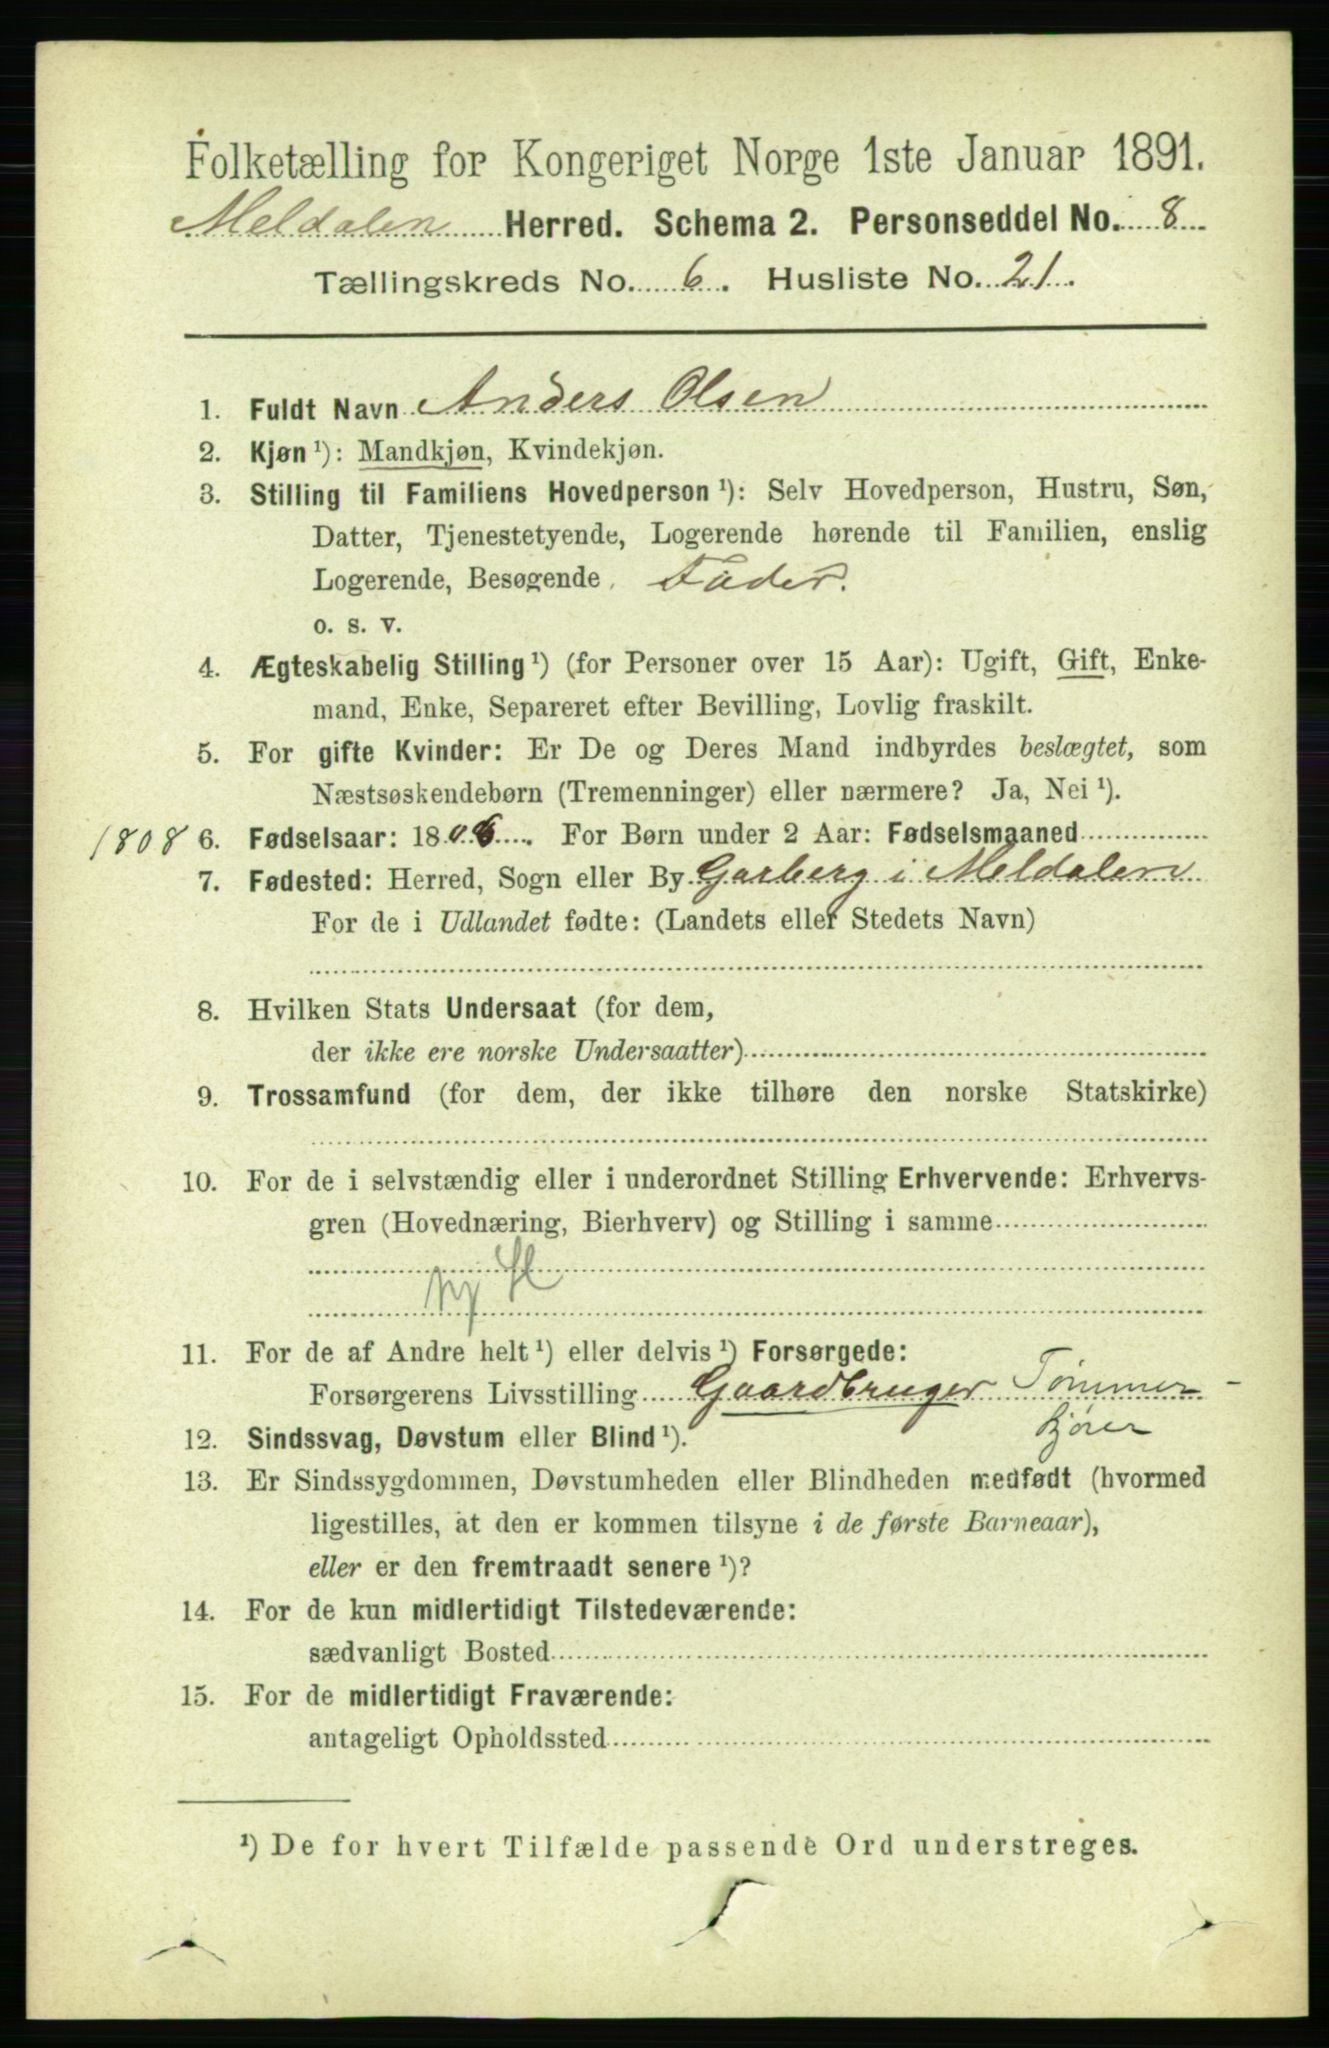 Folketælling for Kongeriget Norge 1ste Januar 1891.
Meldalen Herred. Schema 2. Personseddel No. 8
Tællingskreds No. 6. Husliste No. 21.
1. Fuldt Navn Anders Olsen
2. Kjøn ¹): Mandkjøn, Kvindekjøn.
3. Stilling til Familiens Hovedperson ¹): Selv Hovedperson, Hustru, Søn,
Datter, Tjenestetyende, Logerende hørende til Familien, enslig
Logerende, Besøgende. Fader.
o. s. v.
4. Ægteskabelig Stilling ¹) (for Personer over 15 Aar): Ugift, Gift, Enke-
mand, Enke, Separeret efter Bevilling, Lovlig fraskilt.
5. For gifte Kvinder: Er De og Deres Mand indbyrdes beslægtet, som
Næstsøskendebørn (Tremenninger) eller nærmere? Ja, Nei ¹).
1808 6. Fødselsaar: 1808. For Børn under 2 Aar: Fødselsmaaned
7. Fødested: Herred, Sogn eller By Garberg i Meldalen
For de i Udlandet fødte: (Landets eller Stedets Navn)
8. Hvilken Stats Undersaat (for dem,
der ikke ere norske Undersaatter)
9. Trossamfund (for dem, der ikke tilhøre den norske Statskirke)
10. For de i selvstændig eller i underordnet Stilling Erhvervende: Erhvervs-
gren (Hovednæring, Bierhverv) og Stilling i samme
11. For de af Andre helt ¹) eller delvis ¹) Forsørgede:
Forsørgerens Livsstilling Gaardbruger Tømmer-
kjører
12. Sindssvag, Døvstum eller Blind ¹).
13. Er Sindssygdommen, Døvstumheden eller Blindheden medfødt (hvormed
ligestilles, at den er kommen tilsyne i de første Barneaar),
eller er den fremtraadt senere ¹)?
14. For de kun midlertidigt Tilstedeværende:
sædvanligt Bosted
15. For de midlertidigt Fraværende:
antageligt Opholdssted
¹) De for hvert Tilfælde passende Ord understreges.